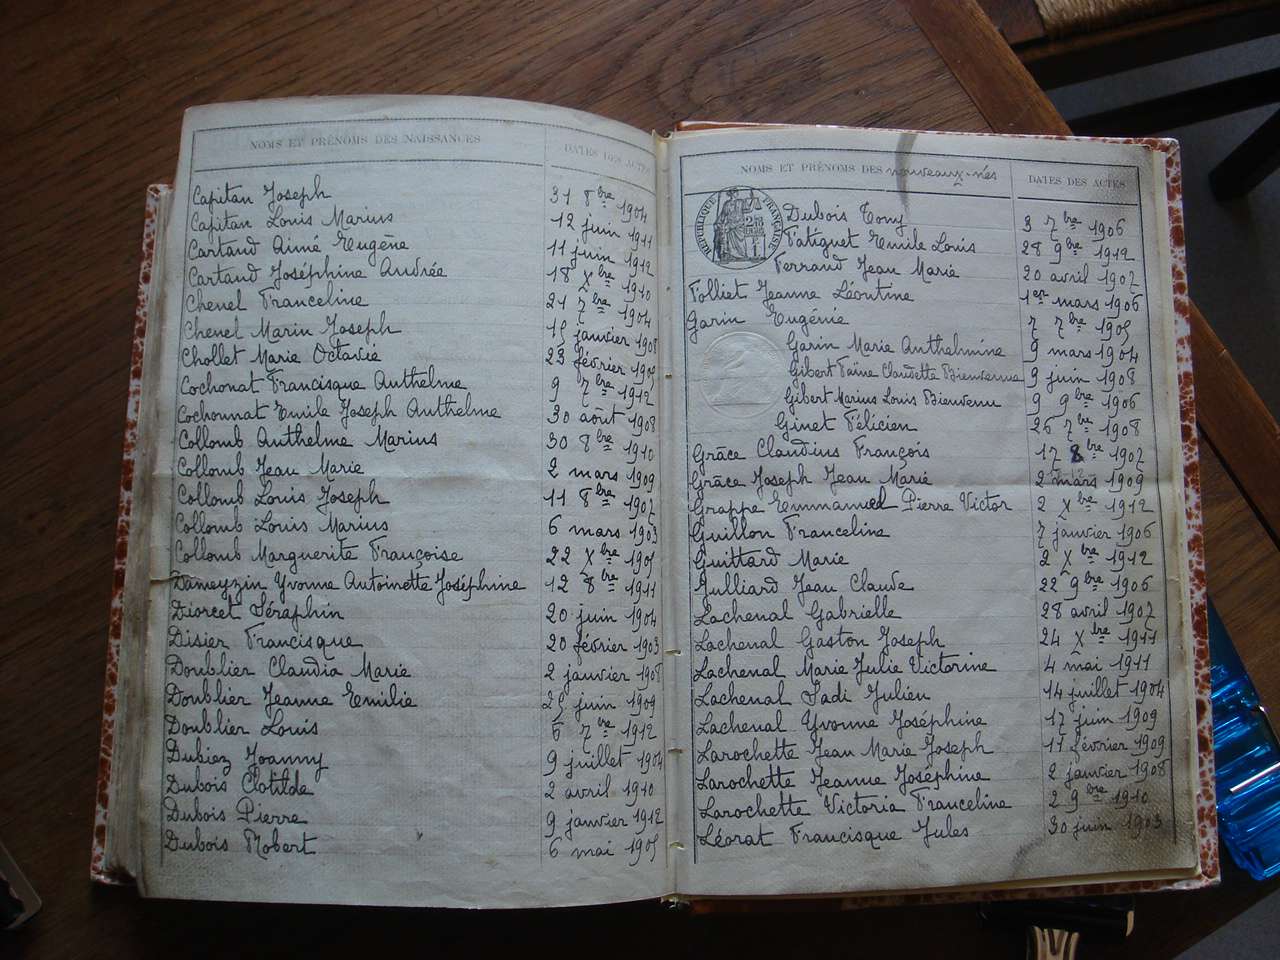 NOMS ET PRÉNOMS DES NAISSANCES DATES DES ACTES
Capitan Joseph 31 8bre 1904
Capitan Louis Marius 12 juin 1911
Cartaud Aimé Eugène 11 juin 1912
Cartaud Joséphine Andrée 18 Xbre 1910
Chenel Franceline 21 7bre 1904
Chenel Marin Joseph 15 janvier 1908
Chollet Marie Octavie 23 février 1905
Cochonat Francisque Anthelme 9 7bre 1912
Cochonnat Emile Joseph Anthelme 30 août 1908
Collomb Anthelme Marius 30 8bre 1910
Collomb Jean Marie 2 mars 1909
Collomb Louis Joseph 11 8bre 1902
Collomb Louis Marius 6 mars 1903
Collomb Marguerite Françoise 22 Xbre 1905
Dameyzin Yvonne Antoinette Joséphine 12 8bre 1911
Diorcet Séraphin 20 juin 1904
Disier Francisque 20 février 1903
Doublier Claudia Marie 2 janvier 1908
Doublier Jeanne Emilie 25 juin 1909
Doublier Louis 6 7bre 1912
Dubiez Joanny 9 juillet 1904
Dubois Clotilde 2 avril 1910
Dubois Pierre 9 janvier 1912
Dubois Robert 6 mai 1905
NOMS ET PRÉNOMS DES nouveaux-nés DATES DES ACTES
RÉPUBLIQUE FRANÇAISE
Dubois Tony 3 7bre 1906
Fatiguet Emile Louis 28 9bre 1912
Ferrand Jean Marie 20 avril 1902
Folliet Jeanne Léontine 1er mars 1906
Garin Eugénie 7 7bre 1905
Garin Marie Anthelmine 9 mars 1904
Gibert Faïne Claudette Bienvenue 9 juin 1908
Gibert Marius Louis Bienvenu 9 9bre 1906
Ginet Félicien 26 7bre 1908
Grâce Claudius François 17 8bre 1902
Grâce Joseph Jean Marie 2 mars 1909
Grappe Emmanuel Pierre Victor 2 Xbre 1912
Guillon Franceline 7 janvier 1906
Guittard Marie 2 Xbre 1912
Julliard Jean Claude 22 9bre 1906
Lachenal Gabrielle 28 avril 1902
Lachenal Gaston Joseph 24 Xbre 1911
Lachenal Marie Julie Victorine 4 mai 1911
Lachenal Sadi Julien 14 juillet 1904
Lachenal Yvonne Joséphine 17 juin 1909
Larochette Jean Marie Joseph 11 février 1909
Larochette Jeanne Joséphine 2 janvier 1908
Larochette Victoria Franceline 2 9bre 1910
Léorat Francisque Jules 30 juin 1903